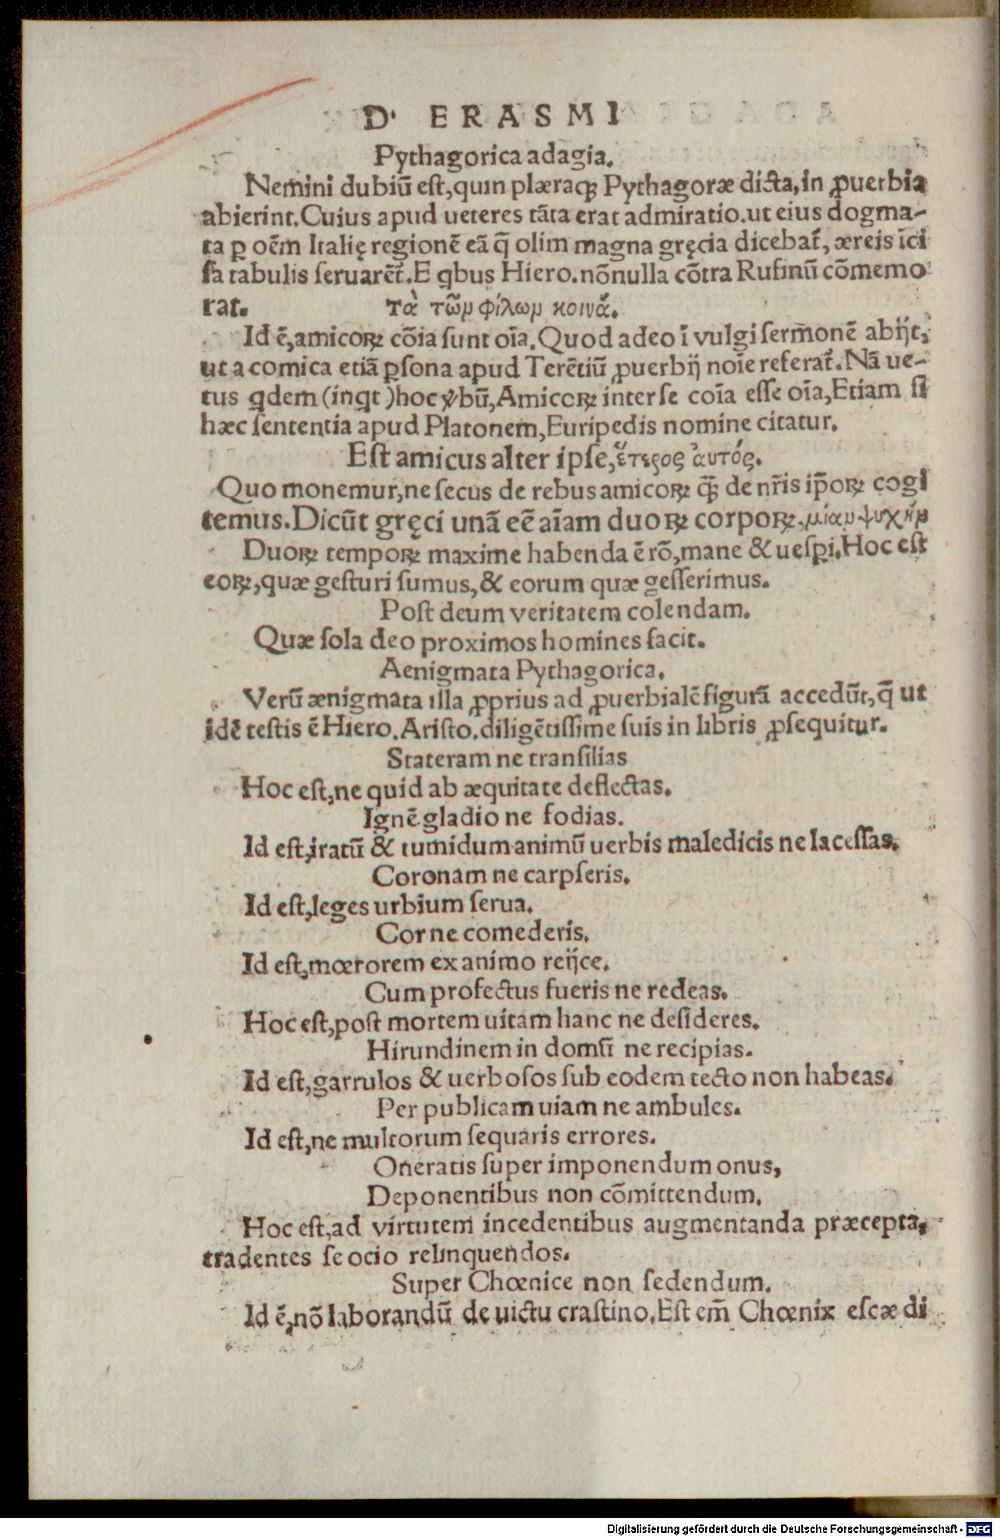 D· ERASMI
Pythagorica adagia.
Nemini dubiū est, quin plæraqꝫ Pythagoræ dicta, in ꝓuerbia
abierint. Cuius apud ueteres tāta erat admiratio. ut eius dogma-
ta ꝑ oēm Italię regionē eā q̄ olim magna gręcia dicebat̄, æreis īci
sa tabulis seruarēt̄. E qbus Hiero. nōnulla cōtra Rufinū cōmemo
rat. τὰ τῶν φίλων κοινά.
Id ē, amicoꝝ cōia sunt oīa. Quod adeo ī vulgi sermonē abijt,
ut a comica etiā ꝑsona apud Terētiū ꝓuerbij noīe referat̄. Nā ue-
tus qdem (inqt) hoc ꝟbū, Amicoꝝ inter se coīa esse oīa, Etiam si
hæc sententia apud Platonem, Euripedis nomine citatur.
Est amicus alter ipse, ἕτερος ἀυτός.
Quo monemur, ne secus de rebus amicoꝝ q̄ꝫ de nr̄is ip̄oꝝ cogi
temus. Dicūt gręci unā eē aīam duoꝝ corpoꝝ, μίαν ψυχήν
Duoꝝ tempoꝝ maxime habenda ē rō, mane & uesꝑi. Hoc est
eoꝝ, quæ gesturi sumus, & eorum quæ gesserimus.
Post deum veritatem colendam.
Quæ sola deo proximos homines facit.
Aenigmata Pythagorica.
Verū ænigmata illa ꝓprius ad ꝓuerbialē figurā accedūt, q̄ ut
idē testis ē Hiero. Aristo. diligētissime suis in libris ꝓsequitur.
Stateram ne transilias
Hoc est, ne quid ab æquitate deflectas.
Ignē gladio ne fodias.
Id est, iratū & tumidum animū uerbis maledicis ne lacessas.
Coronam ne carpseris.
Id est, leges urbium serua.
Cor ne comederis.
Id est, mœrorem ex animo reijce.
Cum profectus fueris ne redeas.
Hoc est, post mortem uitam hanc ne desideres.
Hirundinem in domū ne recipias.
Id est, garrulos & uerbosos sub eodem tecto non habeas.
Per publicam uiam ne ambules.
Id est, ne multorum sequaris errores.
Oneratis super imponendum onus,
Deponentibus non cōmittendum.
Hoc est, ad virtutem incedentibus augmentanda præcepta,
tradentes se ocio relinquendos.
Super Chœnice non sedendum.
Id ē, nō laborandū de uictu crastino. Est em̄ Chœnix escæ di
Digitalisierung gefördert durch die Deutsche Forschungsgemeinschaft - DFG